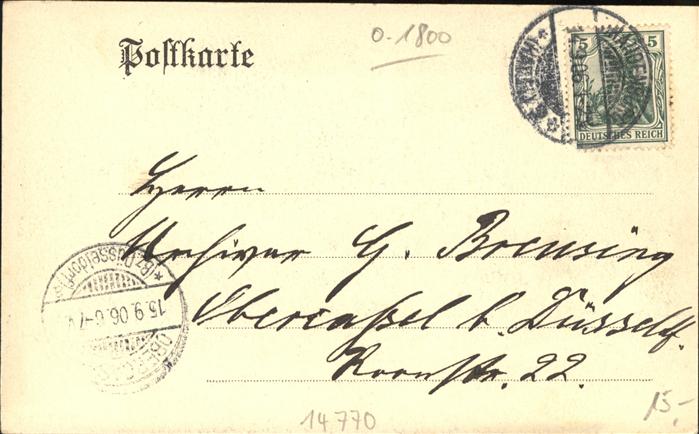 0-1800
Postkarte
5 5
DEUTSCHES REICH
Herrn
Archivar G. Breusing
Obercassel b. Düsseldf.
(Bz. Düsseldorf)
15.9.06. 6-7
OBERCASSEL
14770
15,-